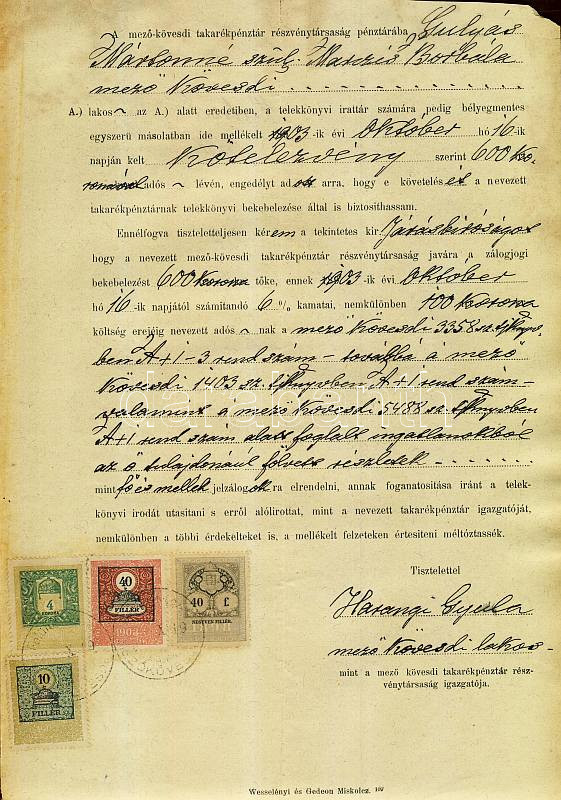 A mező-kövesdi takarékpénztár részvénytársaság pénztárába Gulyás
Mártonné szül. Maczis Borbála
mező Kövesdi
A.) lakos az A.) alatt eredetiben, a telekkönyvi irattár számára pedig bélyegmentes
egyszerü másolatban ide mellékelt 1903-ik évi Október hó 16-ik
napján kelt Kötelezvény szerint 600 Ko-
ronával adós lévén, engedélyt adott arra, hogy e követelését a nevezett
takarékpénztárnak telekkönyvi bekebelezése által is biztosithassam.
Ennélfogva tiszteletteljesen kérem a tekintetes kir. Járásbiróságot
hogy a nevezett mező-kövesdi takarékpénztár részvénytársaság javára a zálogjogi
bekebelezést 600 Korona tőke, ennek 1903-ik évi Október
hó 16-ik napjától számitandó 6 % kamatai, nemkülönben 100 Korona
költség erejéig nevezett adós nak a mező Kövesdi 3358 sz. tjkönyv-
ben A+1-3 rend szám - továbbá a mező
Kövesdi 1403 sz. tjkönyvben A+1 rend szám -
valamint a mező Kövesdi 5488 sz. tjkönyvben
A+1 rend szám alatt foglalt ingatlanokból
az ő tulajdonául fölvett részletek
mint fő és mellék jelzálogokra elrendelni, annak foganatositása iránt a telek-
könyvi irodát utasitani s erről alólirottat, mint a nevezett takarékpénztár igazgatóját,
nemkülönben a többi érdekelteket is, a mellékelt felzeteken értesiteni méltóztassék.
Tisztelettel
Harangi Gyula
mező Kövesdi lakos
mint a mező kövesdi takarékpénztár rész-
vénytársaság igazgatója.
4
KORONA
40
FILLÉR
1903
40 f.
NEGYVEN FILLÉR
10
FILLÉR
darabanth
Wesselényi és Gedeon Miskolcz. 102